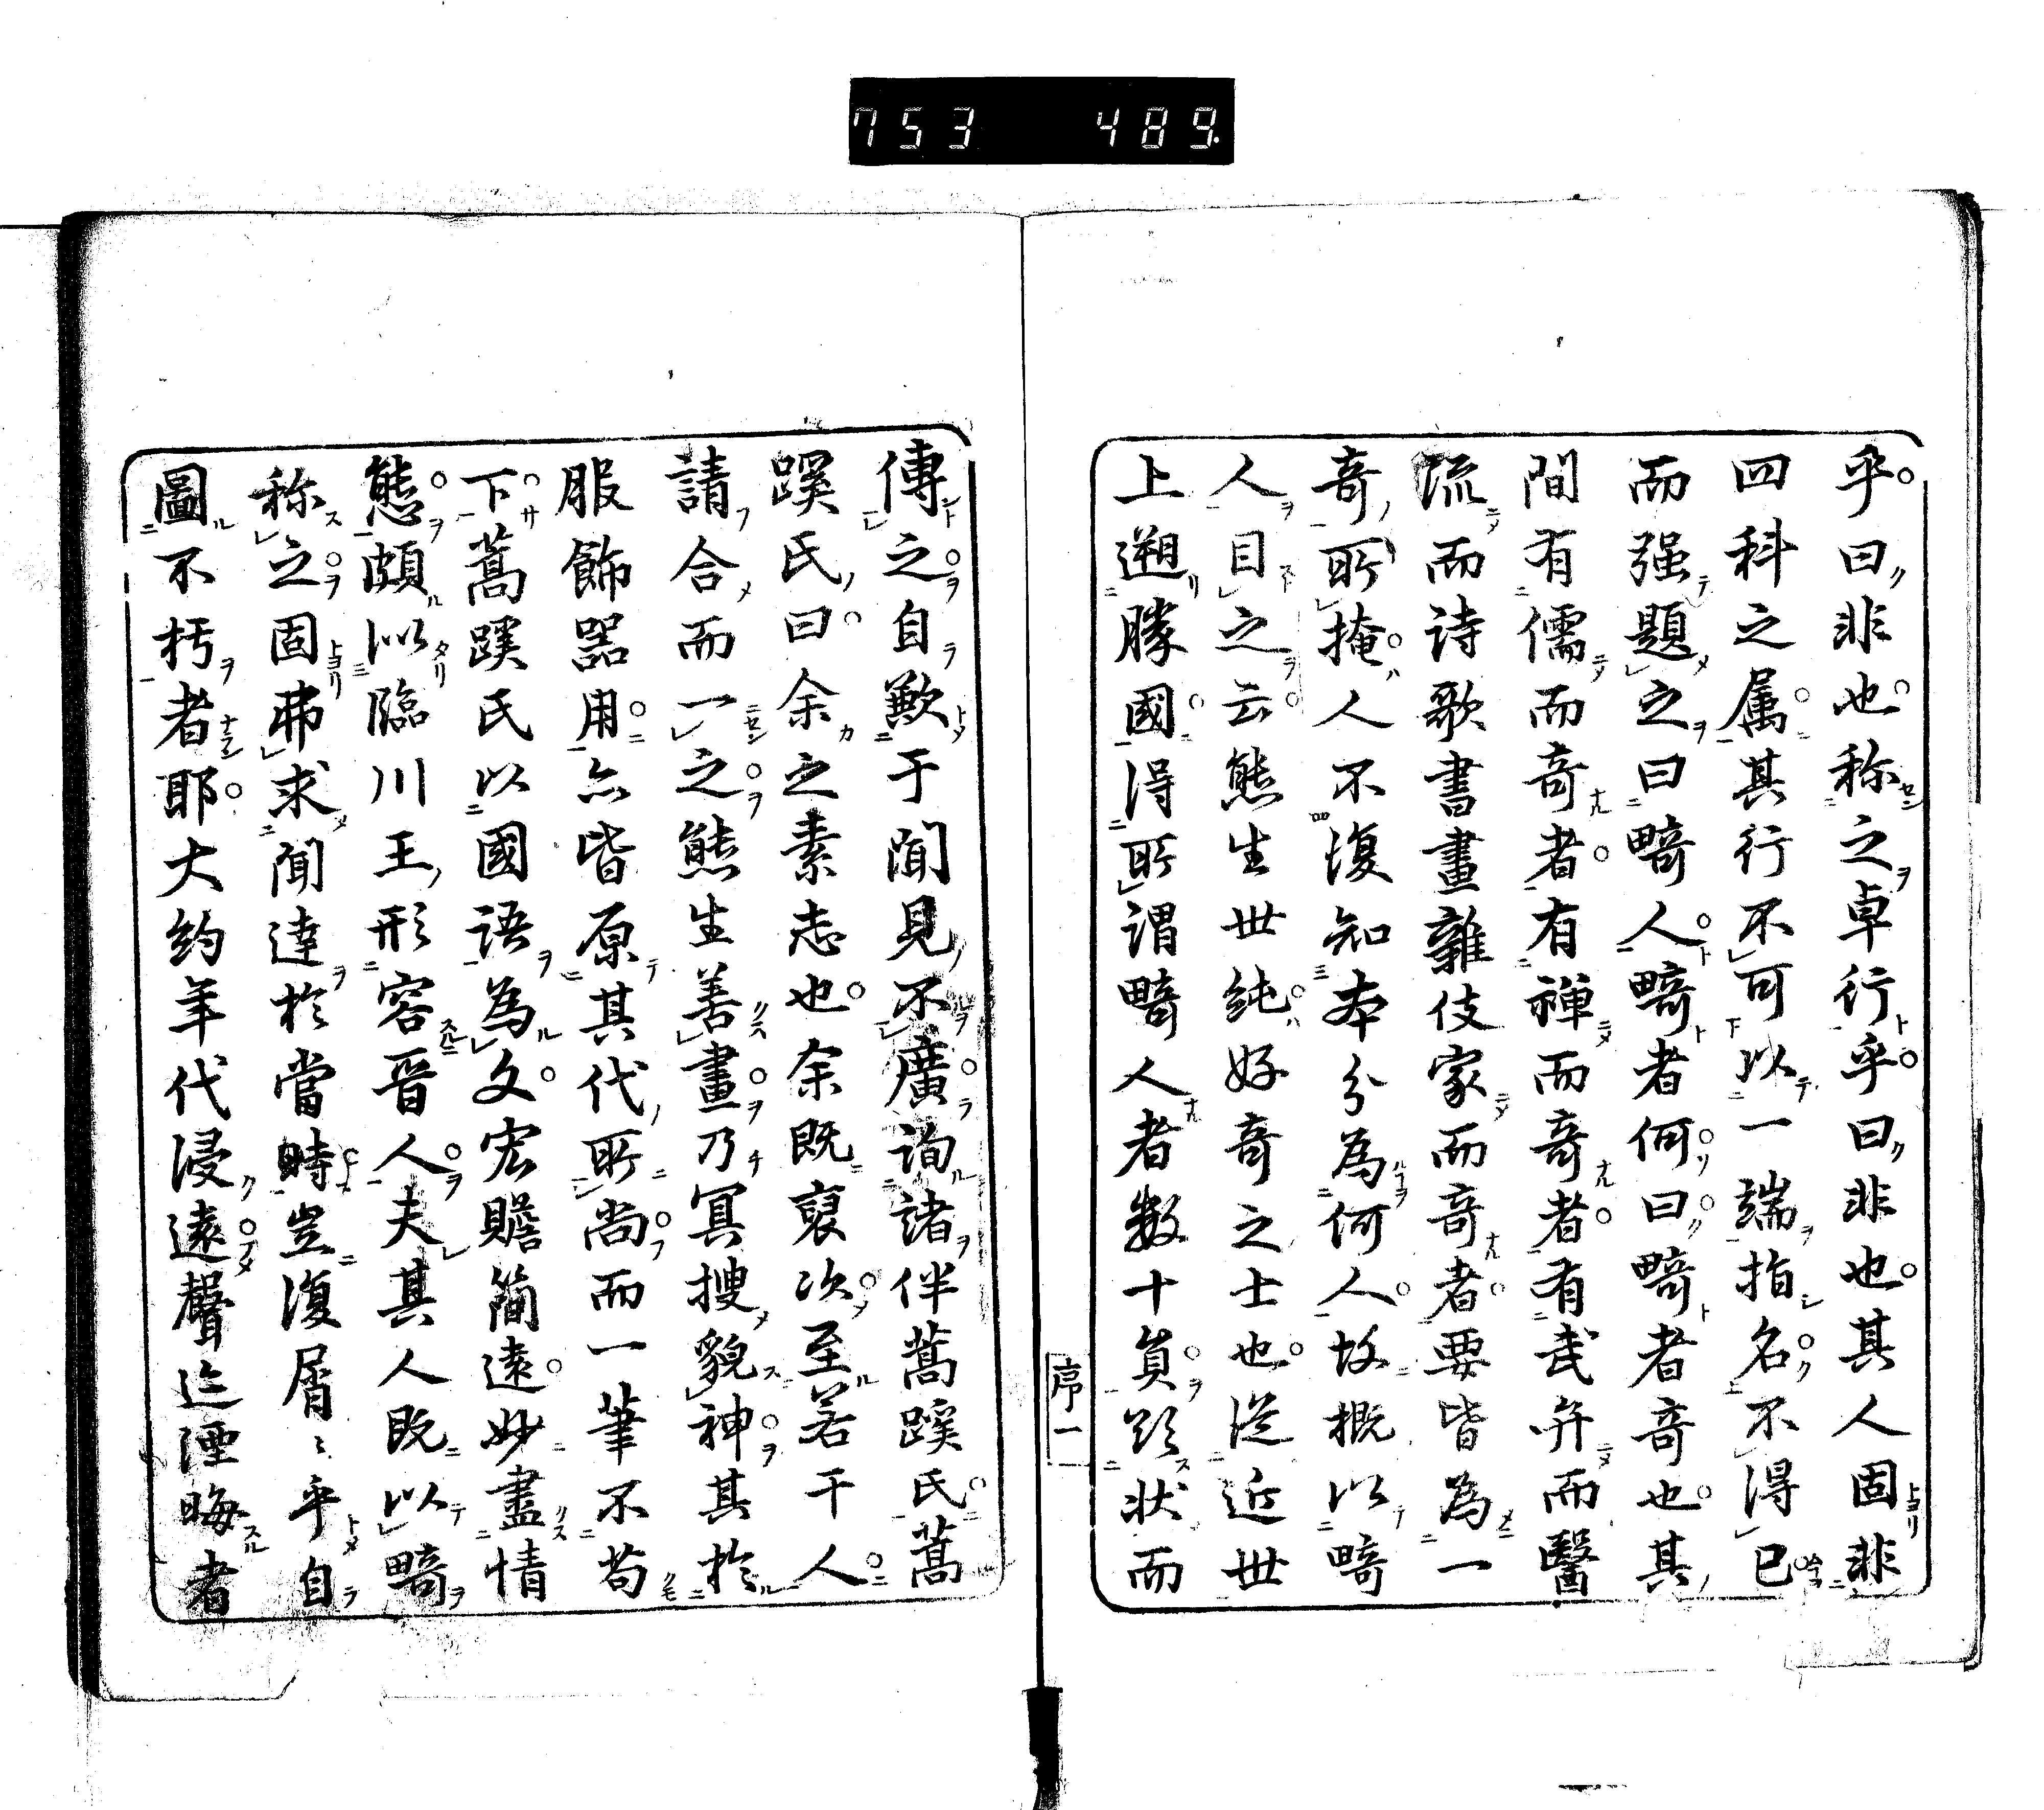 753 489
乎曰非也称之卓行乎曰非也其人固非
四科之属其行不可以一端指名不得已
而强題之曰畸人畸者何曰畸者奇也其
間有儒而奇者有禅而奇者有武弁而醫
流而詩歌書畫雜伎家而奇者要皆為一
奇所掩人不復知本分為何人故概以畸
人目之云熊生世純好奇之士也從近世
上遡勝國得所謂畸人者数十員欲状而
序一
傳之自歉于聞見不廣詢諸伴蒿蹊氏蒿
蹊氏曰余之素志也余既裒次至若干人
請合而一之熊生善畫乃冥搜貌神其於
服飾器用亦皆原其代所尚而一筆不苟
下蒿蹊氏以國語為文宏贍簡遠妙盡情
態頗似臨川王形容晋人夫其人既以畸
称之固弗求聞達於當時豈復屑〻乎自
圖不朽者耶大約年代浸遠聲迹湮晦者